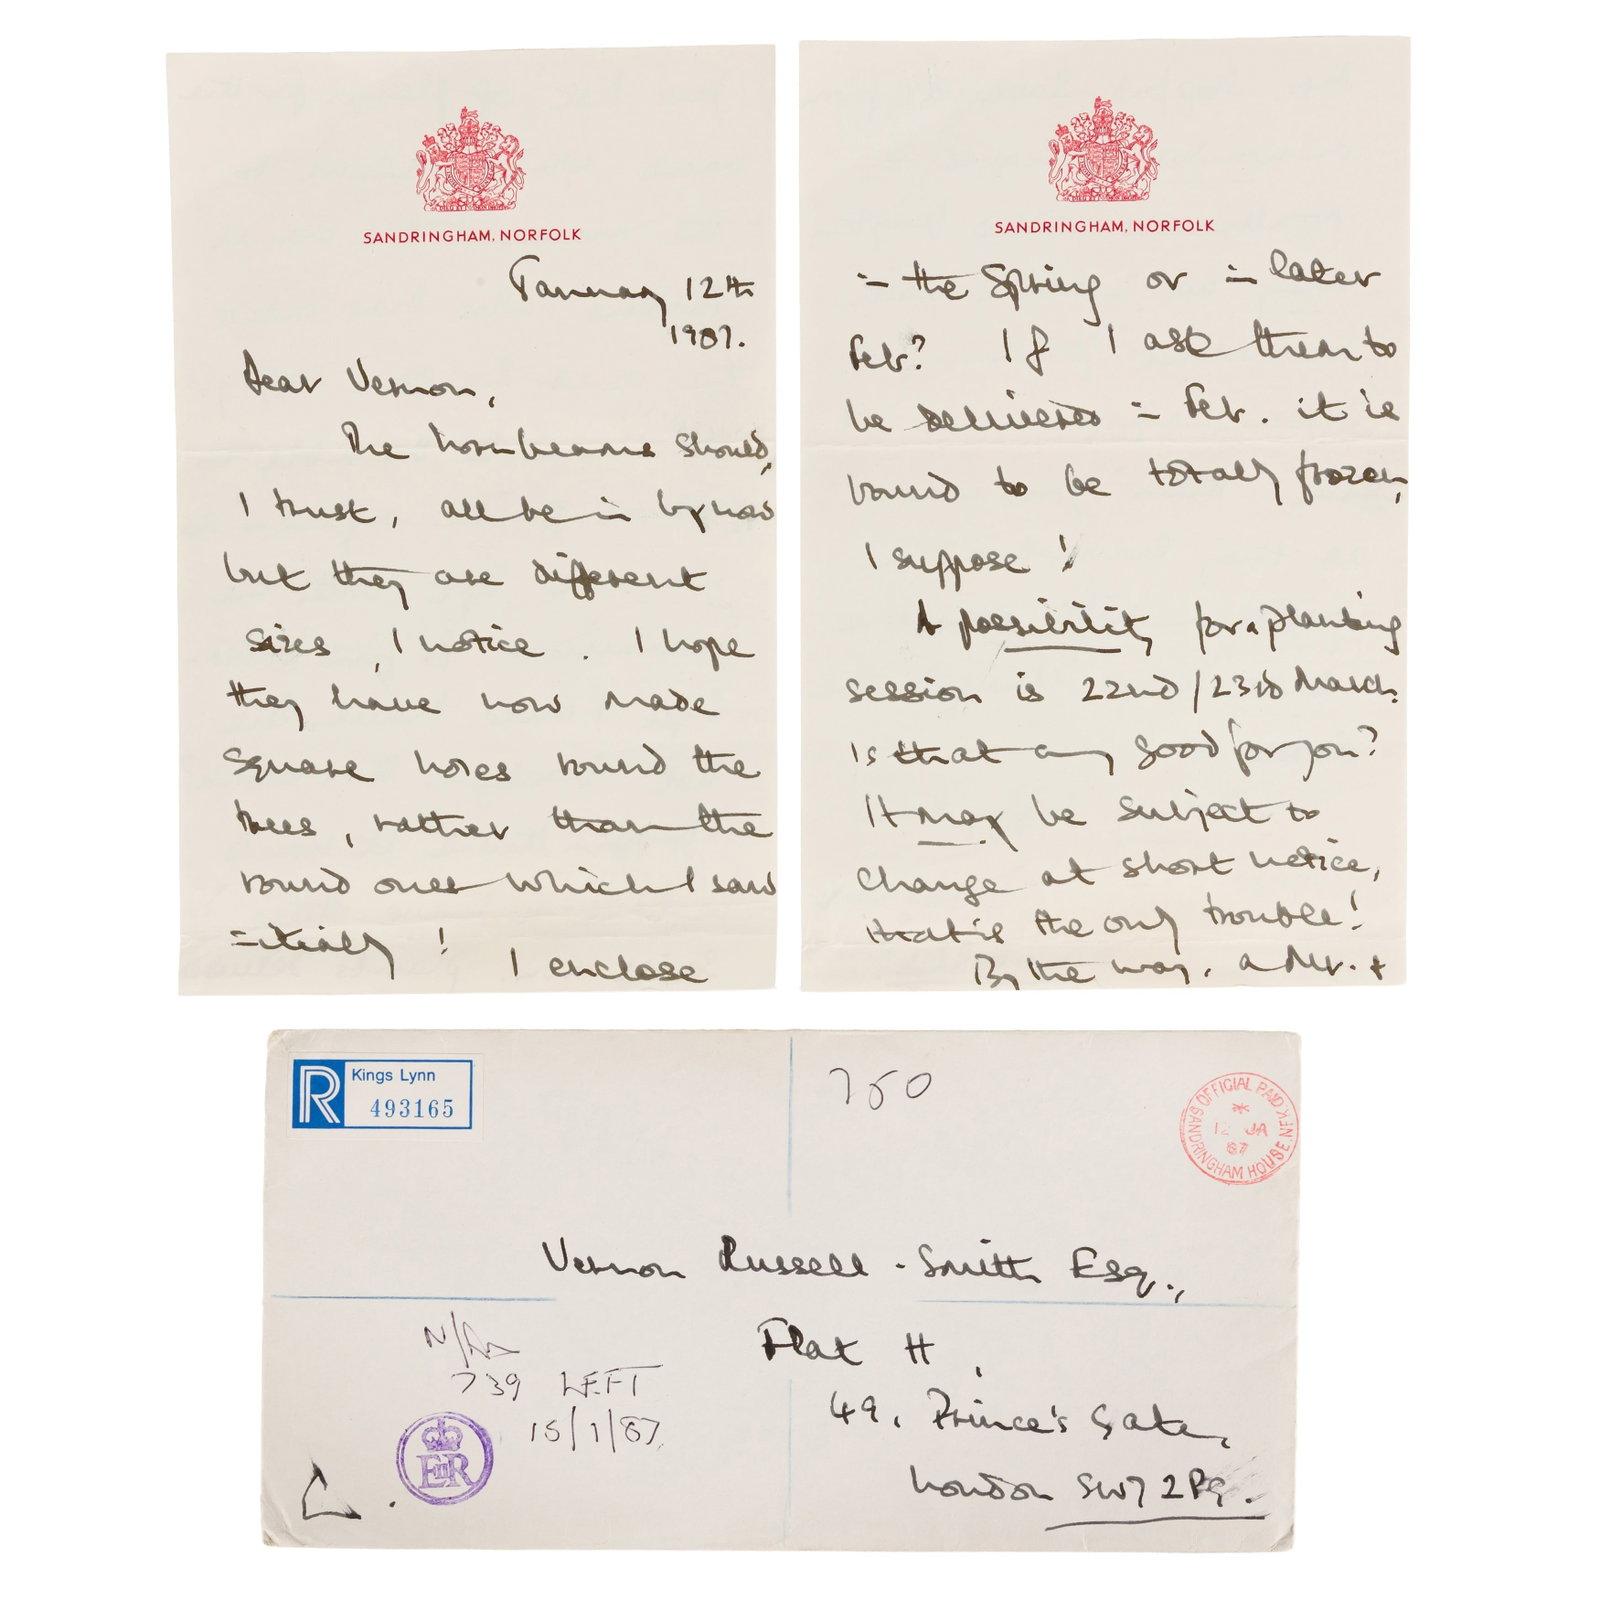 SANDRINGHAM, NORFOLK
January 12th
1987.
Dear Vernon,
The hornbeams should,
I trust, all be in by now
but they are different
sizes, I notice. I hope
they have now made
square holes round the
trees, rather than the
round ones which I saw
initially! I enclose
SANDRINGHAM, NORFOLK
in the Spring or in later
Feb? If I ask them to
be delivered in Feb. it is
bound to be totally frozen,
I suppose!
A possibility for a planting
session is 22nd/23rd March.
Is that any good for you?
It may be subject to
change at short notice,
that is the only trouble!
By the way, a Mr. +
R
Kings Lynn
493165
750
OFFICIAL PAID
12 JA
87
SANDRINGHAM HOUSE. NFK
Vernon Russell-Smith Esq.,
Flat H,
49, Prince's Gate,
London SW7 2PG.
739 LEFT
15/1/87
EIIR
C.